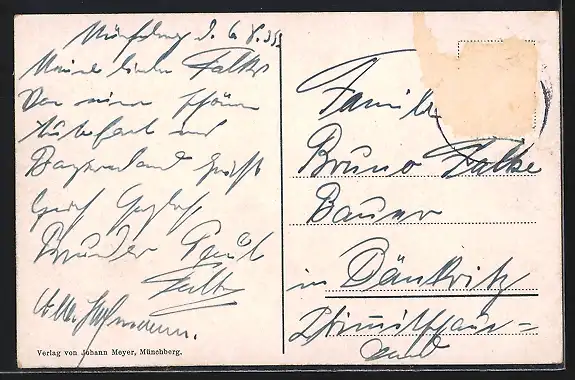 Münchberg d. 6.8.35
Meine lieben Falkes
Von einer schönen
Autofahrt aus
Bayernland grüßt
Euch herzlich
Bruder Paul
Falke
Familie
Bruno Falke
Bauer
in Dänkritz
Verlag von Johann Meyer, Münchberg.